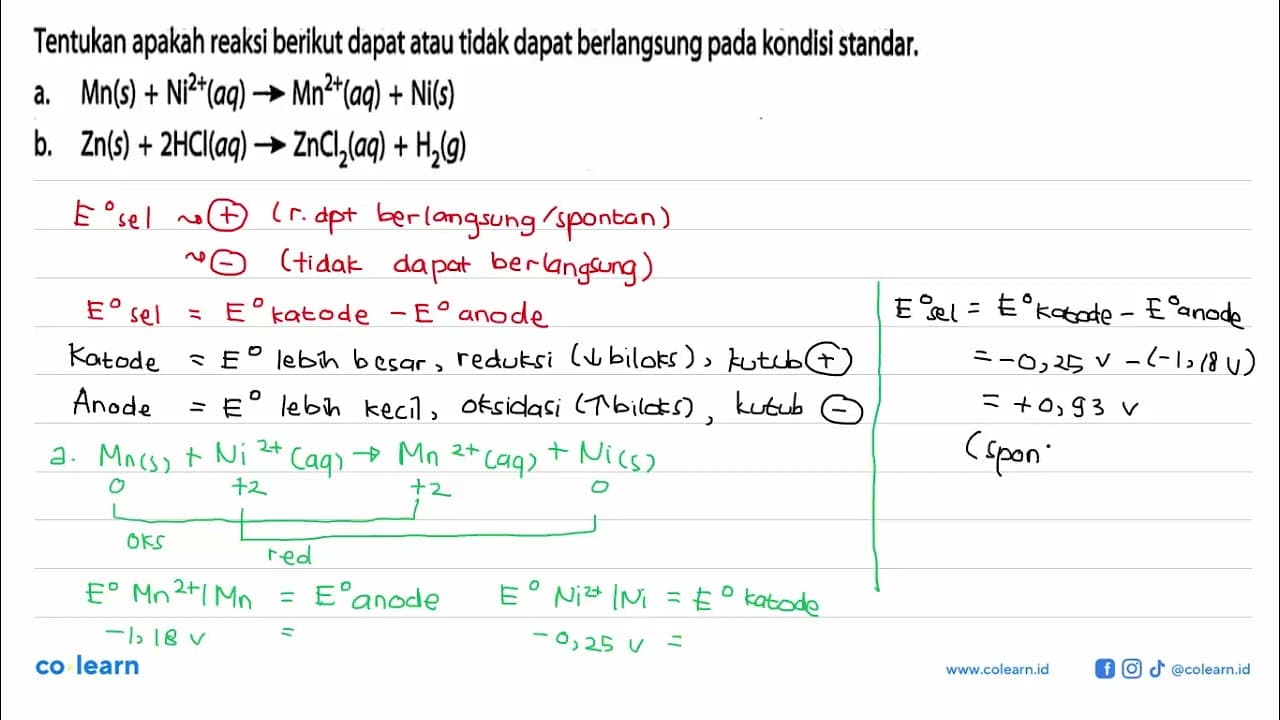 Tentukan apakah reaksi berikut dapat atau tidak dapat berlangsung pada kondisi standar.
a. Mn(s) + Ni²⁺(aq) → Mn²⁺(aq) + Ni(s)
b. Zn(s) + 2HCl(aq) → ZnCl₂(aq) + H₂(g)
E° sel ↝ ⊕ (r. dpt berlangsung/spontan)
↝ ⊖ (tidak dapat berlangsung)
E° sel = E° katode - E° anode
Katode = E° lebih besar, reduksi (↓ biloks), kutub ⊕
Anode = E° lebih kecil, oksidasi (↑ biloks), kutub ⊖
a. Mn(s) + Ni²⁺(aq) → Mn²⁺(aq) + Ni(s)
0 +2 +2 0
oks
red
E° Mn²⁺/Mn = E° anode E° Ni²⁺/Ni = E° katode
-1,18 v = -0,25 v =
E° sel = E° katode - E° anode
= -0,25 v - (-1,18 v)
= +0,93 v
(spon
co learn
www.colearn.id
@colearn.id